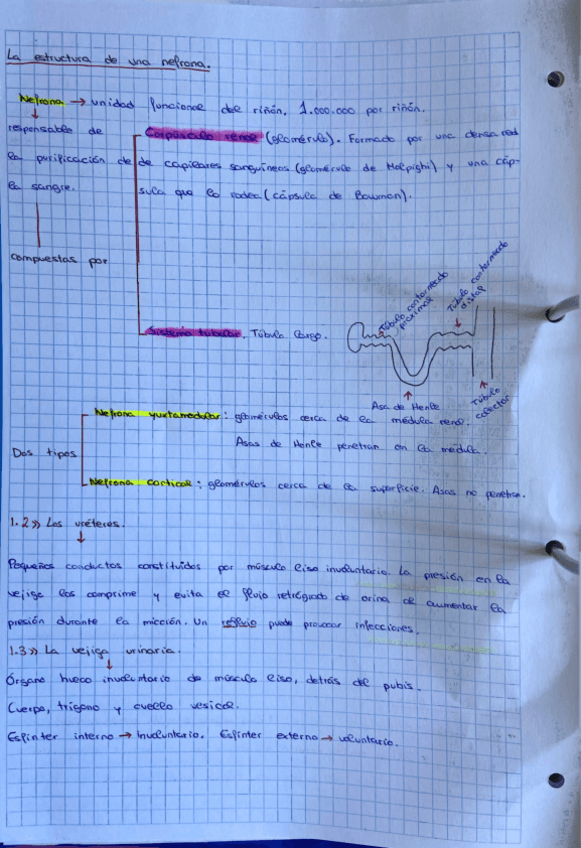 La estructura de una nefrona.
Nefrona → unidad funcional del riñón, 1.000.000 por riñón.
responsable de
la purificación de
la sangre.
Corpúsculo renal (glomérulo). Formado por una densa red
de capilares sanguíneos (glomérulo de Malpighi) y una cáp-
sula que lo rodea (cápsula de Bowman).
compuestas por
Sistema tubular. Túbulo largo.
Túbulo contorneado
proximal
Túbulo contorneado
distal
Asa de Henle
Túbulo
colector
Dos tipos
Nefrona yuxtamedular: glomérulos cerca de la médula renal.
Asas de Henle penetran en la médula.
Nefrona cortical: glomérulos cerca de la superficie. Asas no penetran.
1.2» Los uréteres.
Pequeños conductos constituidos por músculo liso involuntario. La presión en la
vejiga los comprime y evita el flujo retrógrado de orina al aumentar la
presión durante la micción. Un reflujo puede provocar infecciones.
1.3» La vejiga urinaria.
Órgano hueco involuntario de músculo liso, detrás del pubis.
Cuerpo, trígono y cuello vesical.
Esfínter interno → involuntario. Esfínter externo → voluntario.